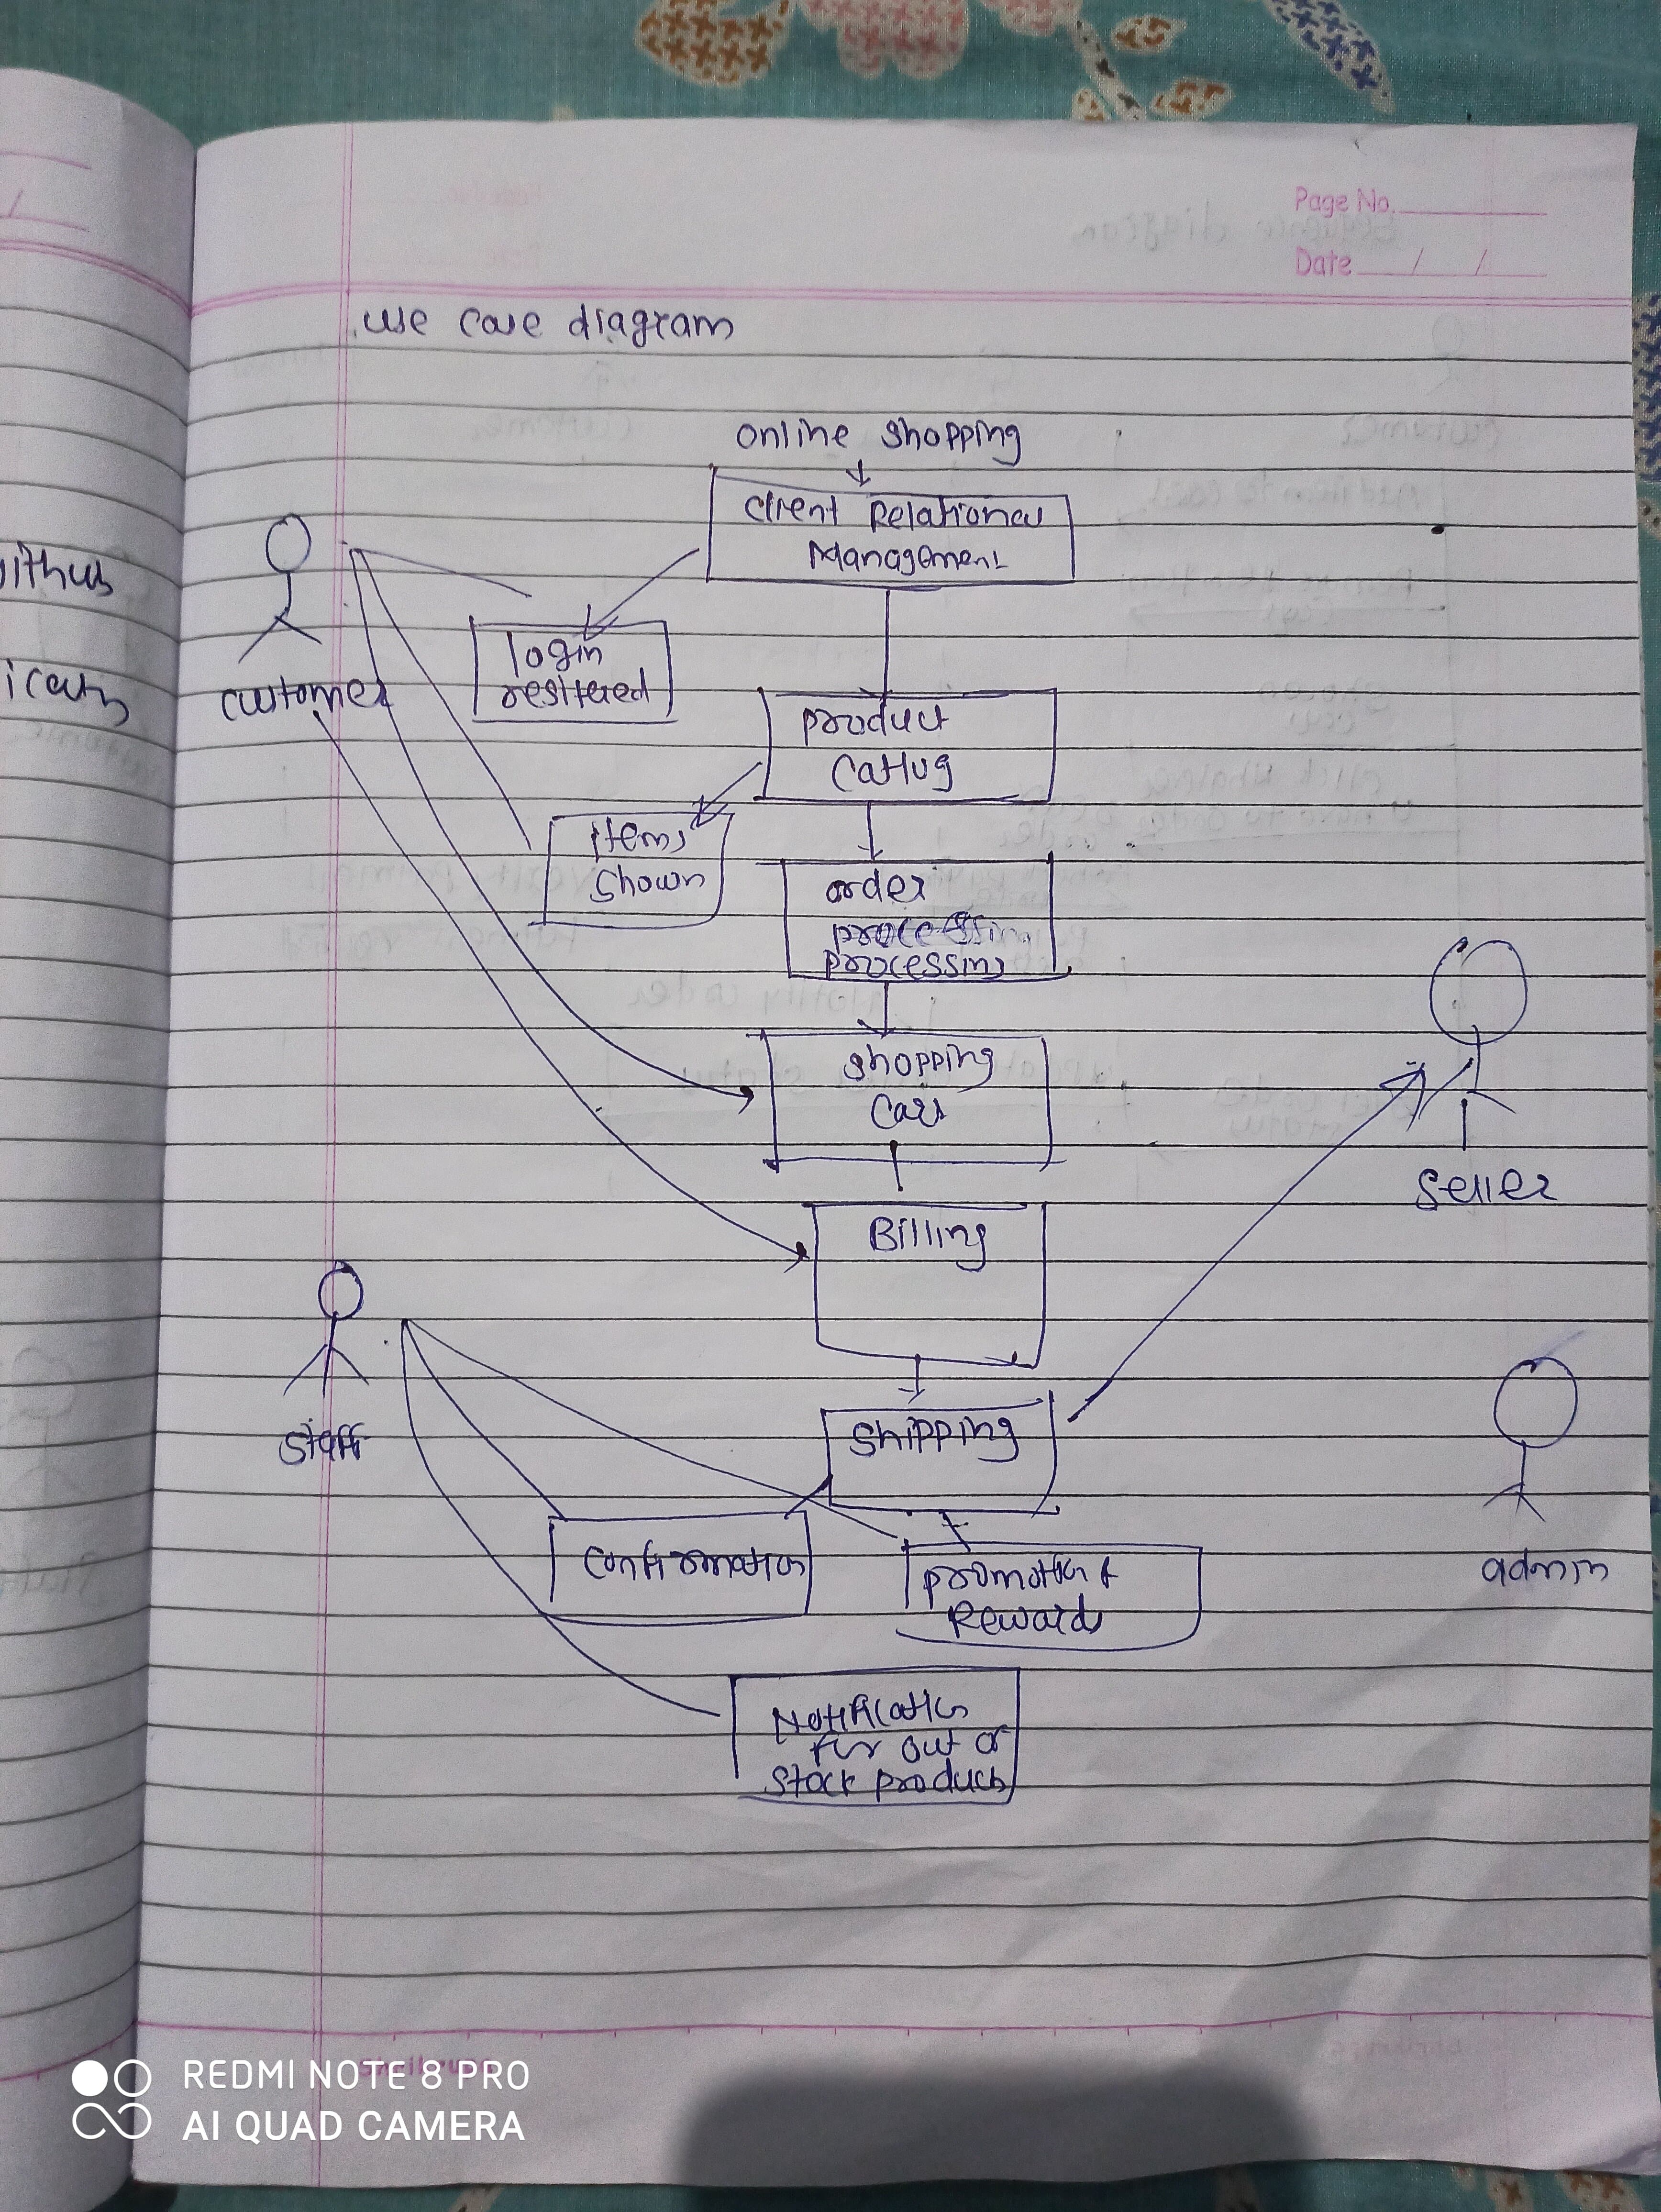 Page No.
Date / /
use case diagram
online shopping
client Relational
Management
login
resitered
customer
product
Catlug
items
shown
order
processin
processing
shopping
Cart
Seller
Billing
shipping
staff
confirmation
promotion &
Rewards
admin
Notification
for out of
stock products
REDMI NOTE 8 PRO
AI QUAD CAMERA